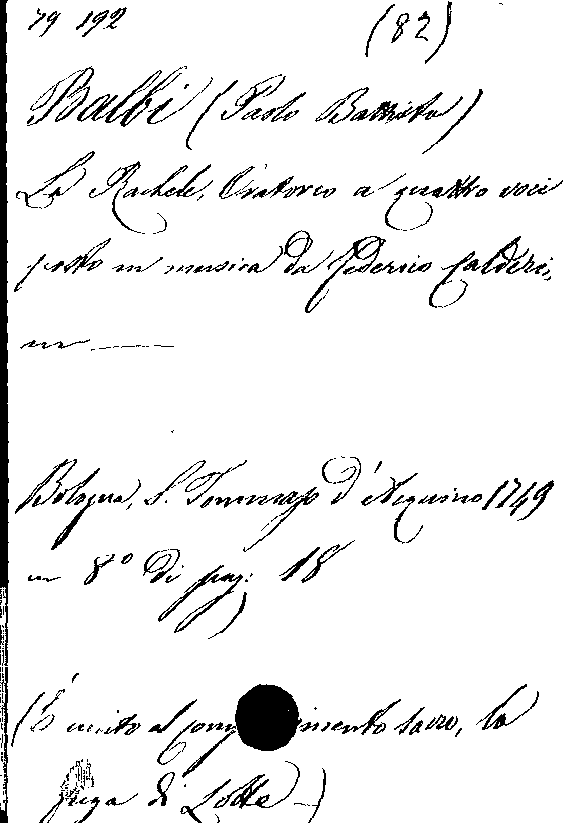 79 192 (82)
Balbi (Paolo Battista)
La Rachele, Oratorio a quattro voci
posto in musica da Federico Calderi,
ni
Bologna, S. Tommaso d'Aquino 1749
in 8° di pag: 18
(È unito al comp imento sacro, la
fuga di Lotte)